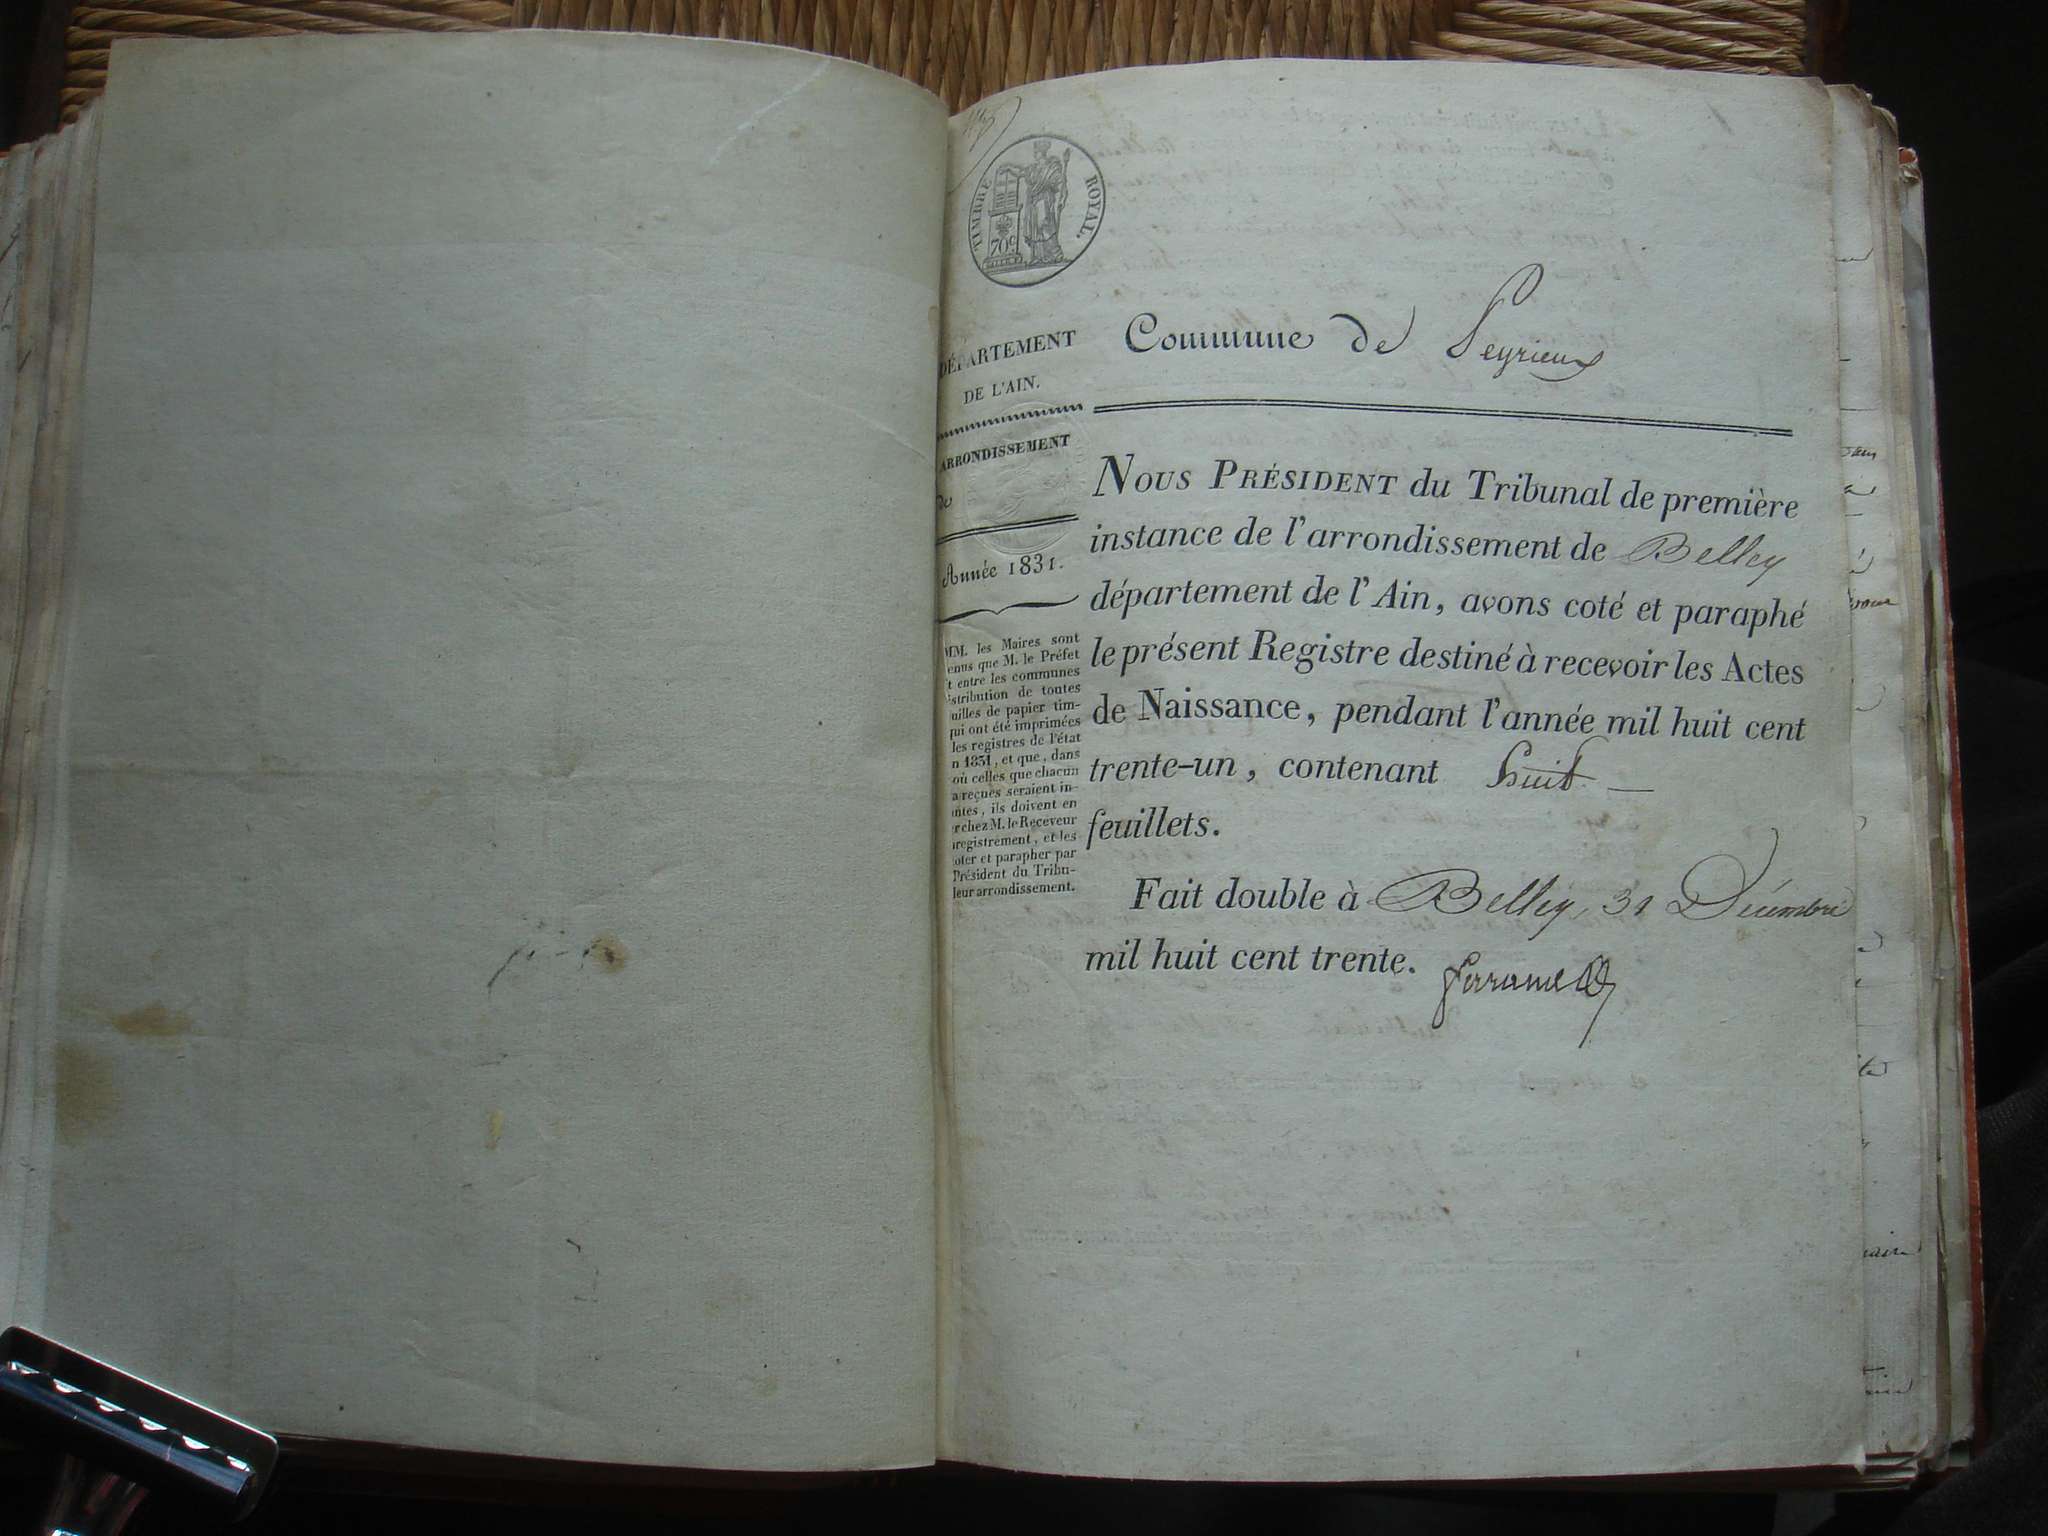 TIMBRE ROYAL.
70c
DÉPARTEMENT
DE L'AIN.
ARRONDISSEMENT
de
Année 1831.
MM. les Maires sont
enus que M. le Préfet
t entre les communes
istribution de toutes
uilles de papier tim-
qui ont été imprimées
les registres de l'état
n 1831, et que, dans
où celles que chacun
a reçues seraient in-
ntes, ils doivent en
r chez M. le Receveur
nregistrement, et les
oter et parapher par
Président du Tribu-
leur arrondissement.
Commune de Peyrieux
NOUS PRÉSIDENT du Tribunal de première
instance de l'arrondissement de Belley
département de l'Ain, avons coté et paraphé
le présent Registre destiné à recevoir les Actes
de Naissance, pendant l'année mil huit cent
trente-un, contenant huit
feuillets.
Fait double à Belley, 31 Décembre
mil huit cent trente.